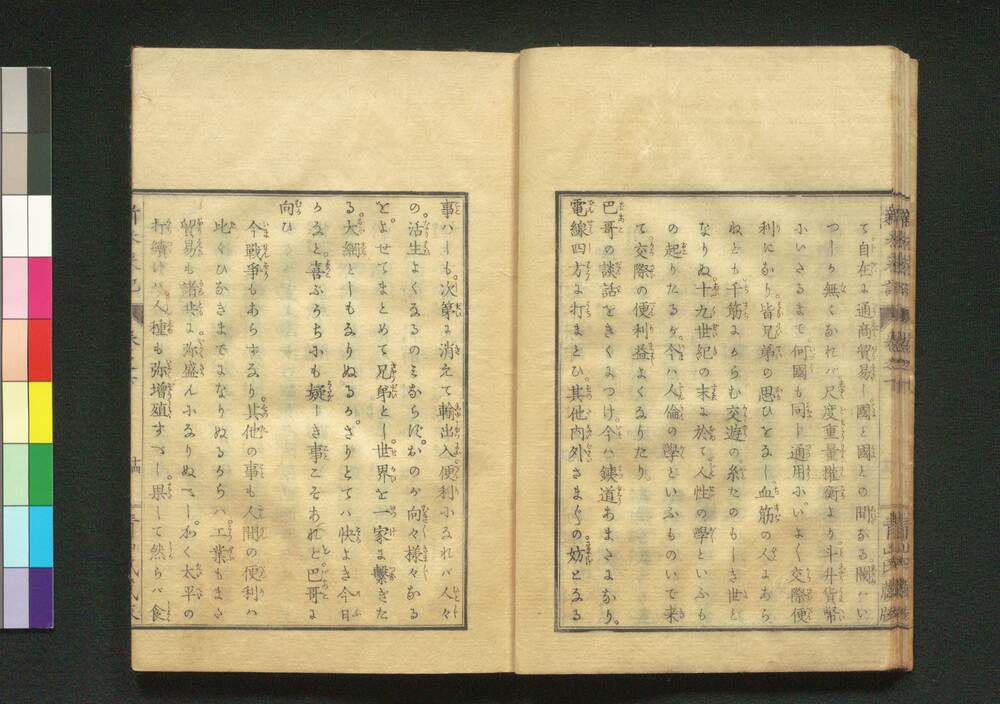 て自在に通商貿易し國と國との間なる關ハい
つしか無くなれバ尺度重量権衡より斗升貨幣
小いたるまで何國も同し通用小いよく交際便
利になり皆兄弟の思ひをなし血筋の人にあら
ねども千筋にからむ交遊の糸たのもしき世と
なりぬ十九世紀の末に於て人性の學といふも
の起りたるが今ハ人倫の學といふものいで来
て交際の便利益よくなりたり
巴哥の談話をきくにつけ今ハ鐵道あまさまなり
電線四方に打まとひ其他内外さまぐの妨となる
事ハしも次第に消えて輸出入便利小なれバ人々
の活生よくなるのミならずおのが向々様々なる
をよせてまとめて兄弟とし世界を一家に繋ぎた
る大綱としもなりぬるかさりとてハ快よき今日
かなと喜ぶうちにも疑しき事こそあれと巴哥に
向ひ
今戰爭もあらずなり其他の事も人間の便利ハ
此くひなきまでになりぬるからハ工業もまさ
貿易も諸共に弥盛ん小なりぬべしかく太平の
打續けバ人種も弥増殖すべし果して然らハ食